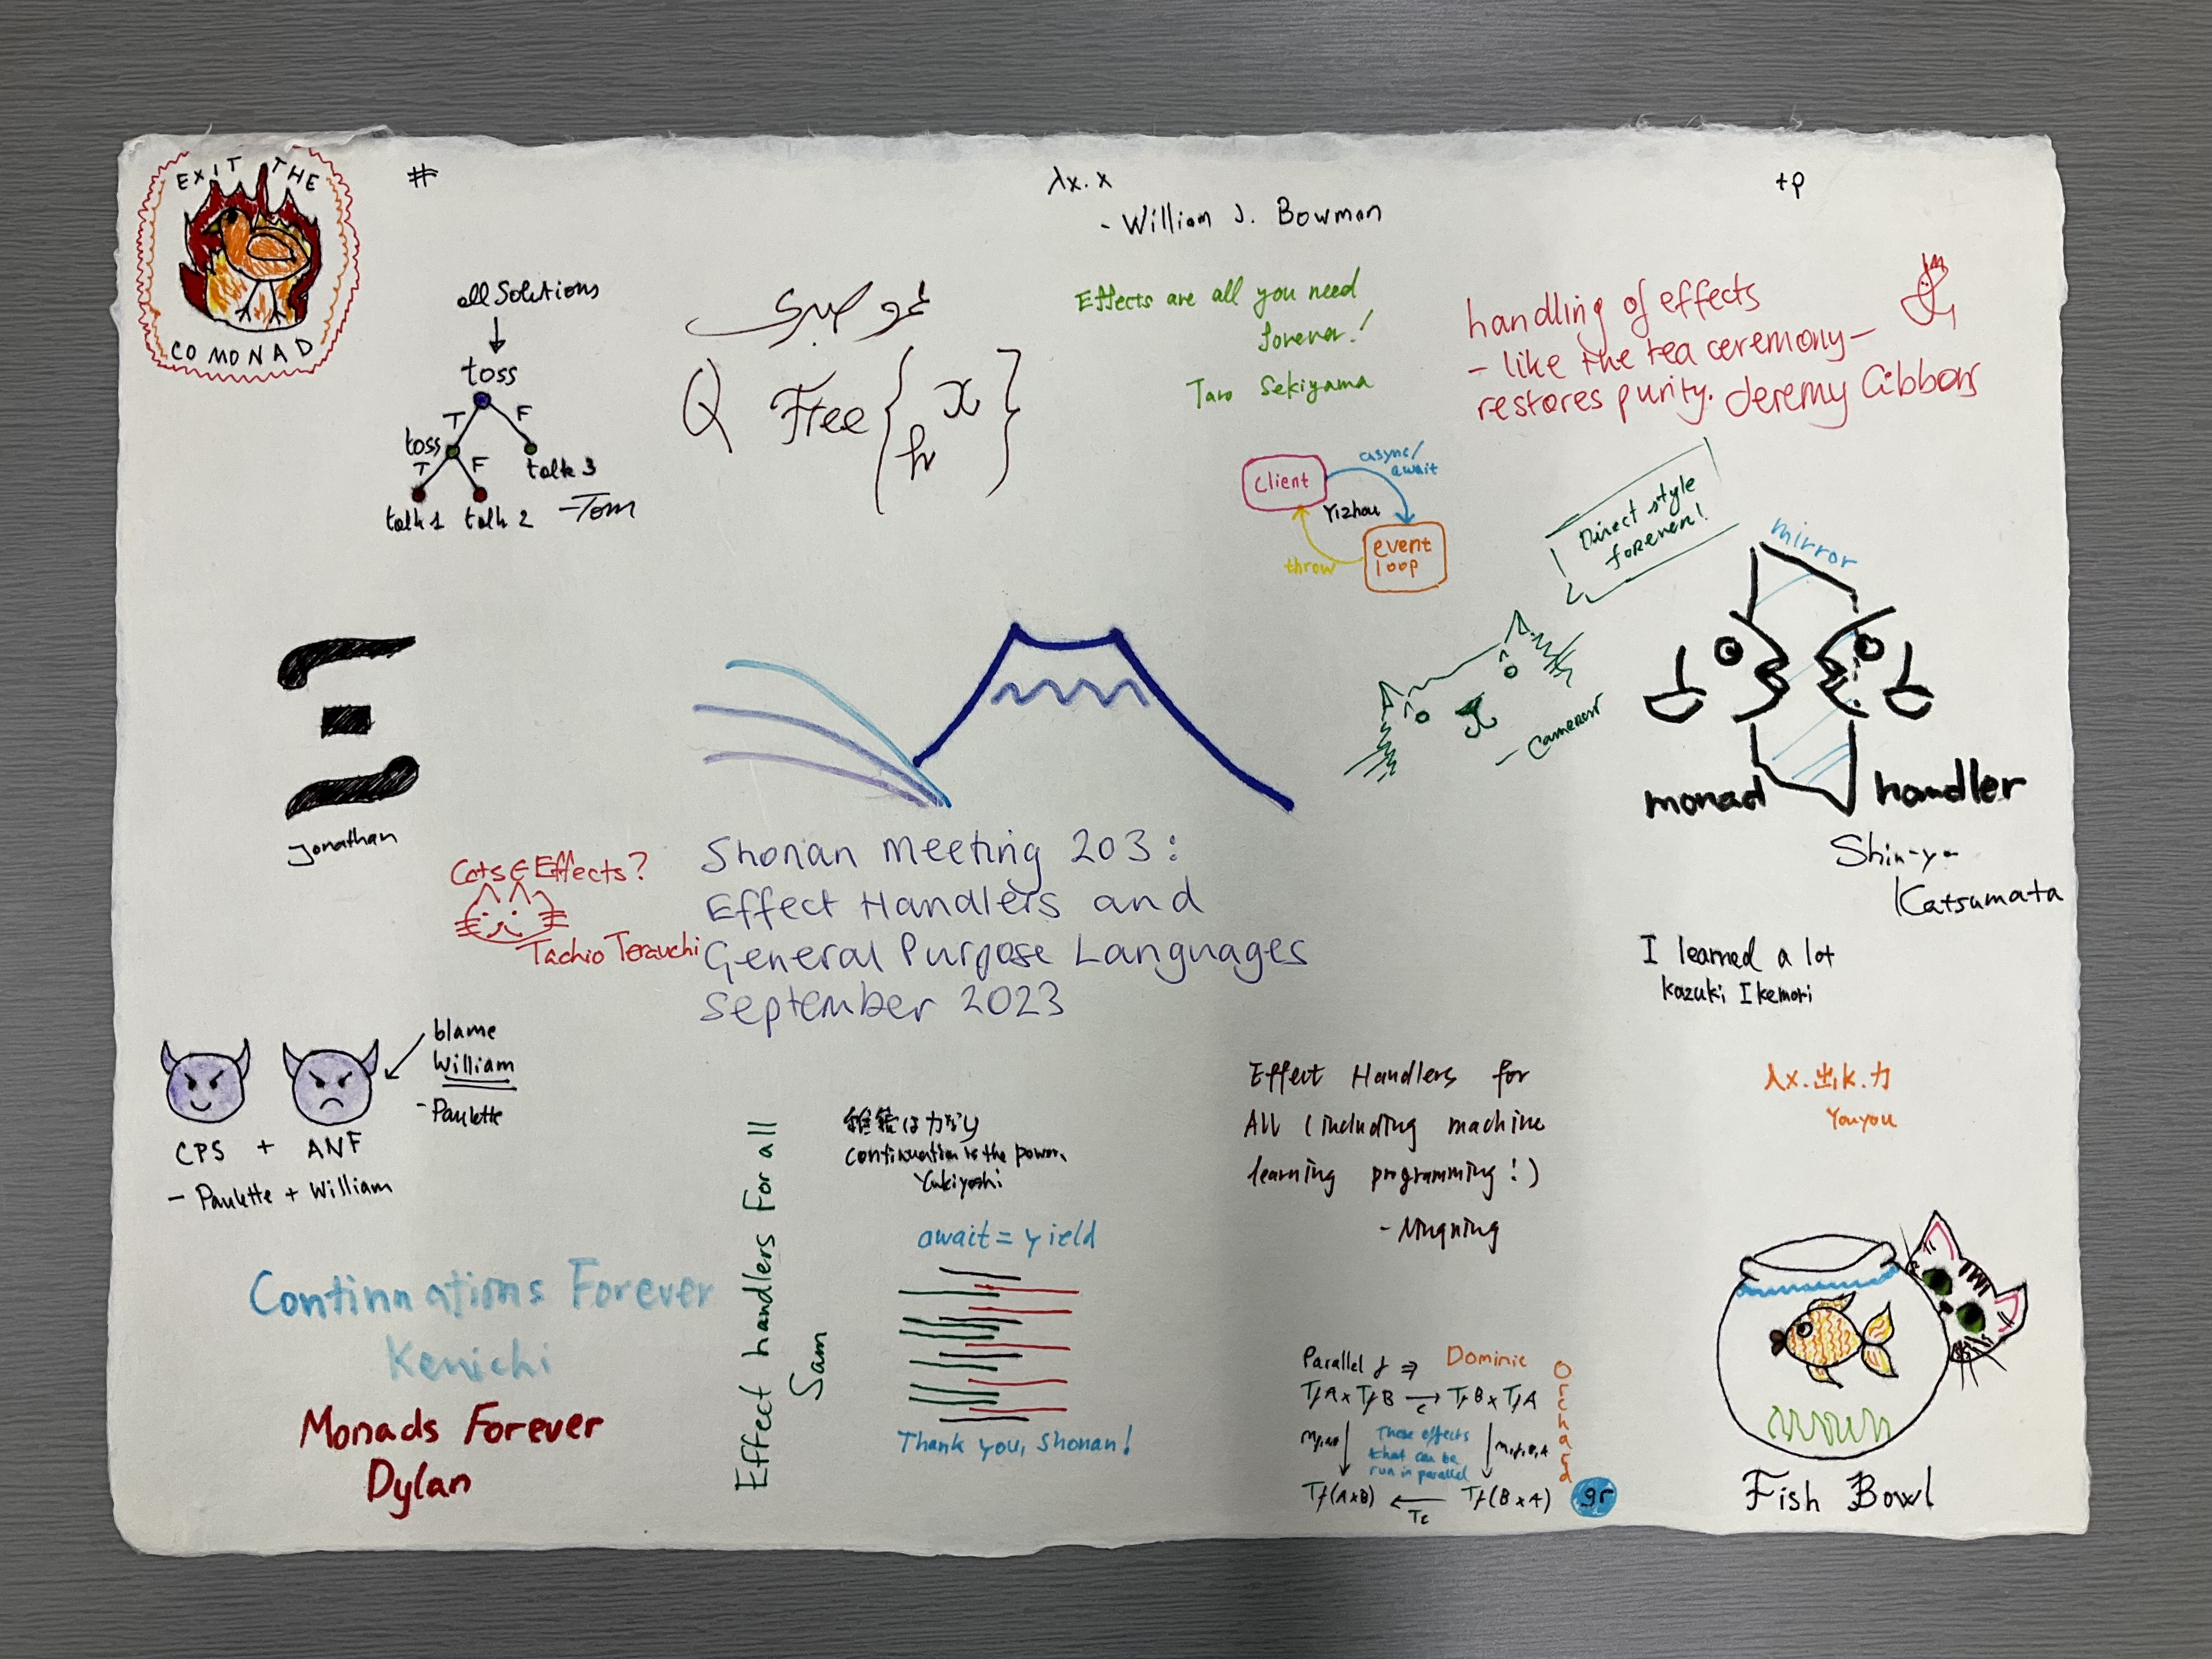 EXIT THE
COMONAD
#
λx.x
- William J. Bowman
tp
all Solutions
toss
T
F
toss
T
F
talk 3
talk 1
talk 2
-Tom
Q Free { x
h }
Effects are all you need
forever!
Taro Sekiyama
handling of effects
- like the tea ceremony -
restores purity. Jeremy Gibbons
client
async/
await
Yizhou
throw
event
loop
Direct style
forever!
- Cameron
mirror
monad
handler
Shin-ya
Katsumata
Jonathan
Cats ∈ Effects?
Tachio Terauchi
Shonan Meeting 203:
Effect Handlers and
General Purpose Languages
September 2023
I learned a lot
Kazuki Ikemori
blame
William
- Paulette
CPS + ANF
- Paulette + William
Effect handlers For all
Sam
継続は力なり
Continuation is the power.
Yukiyoshi
Effect Handlers for
All (including machine
learning programming!)
- Ningning
λx.出k.力
Youyou
Continuations Forever
Kenichi
Monads Forever
Dylan
await = yield
Thank you, Shonan!
Parallel f ⇒
Dominic
Orchard
TfA × TfB → TfB × TfA
c
These effects
that can be
run in parallel
Tf(A×B) ← Tf(B×A)
Tc
gr
Fish Bowl